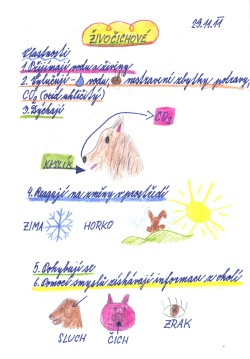 ŽIVOČICHOVÉ
29.11.11
Vlastnosti
1. Přijímají vodu a živiny
2. Vylučují - vodu, nestravené zbytky potravy,
CO₂ (oxid uhličitý)
3. Dýchají
CO₂
KYSLÍK
4. Reagují na změny v prostředí
ZIMA HORKO
5. Pohybují se
6. Pomocí smyslů získávají informace z okolí
SLUCH ČICH ZRAK